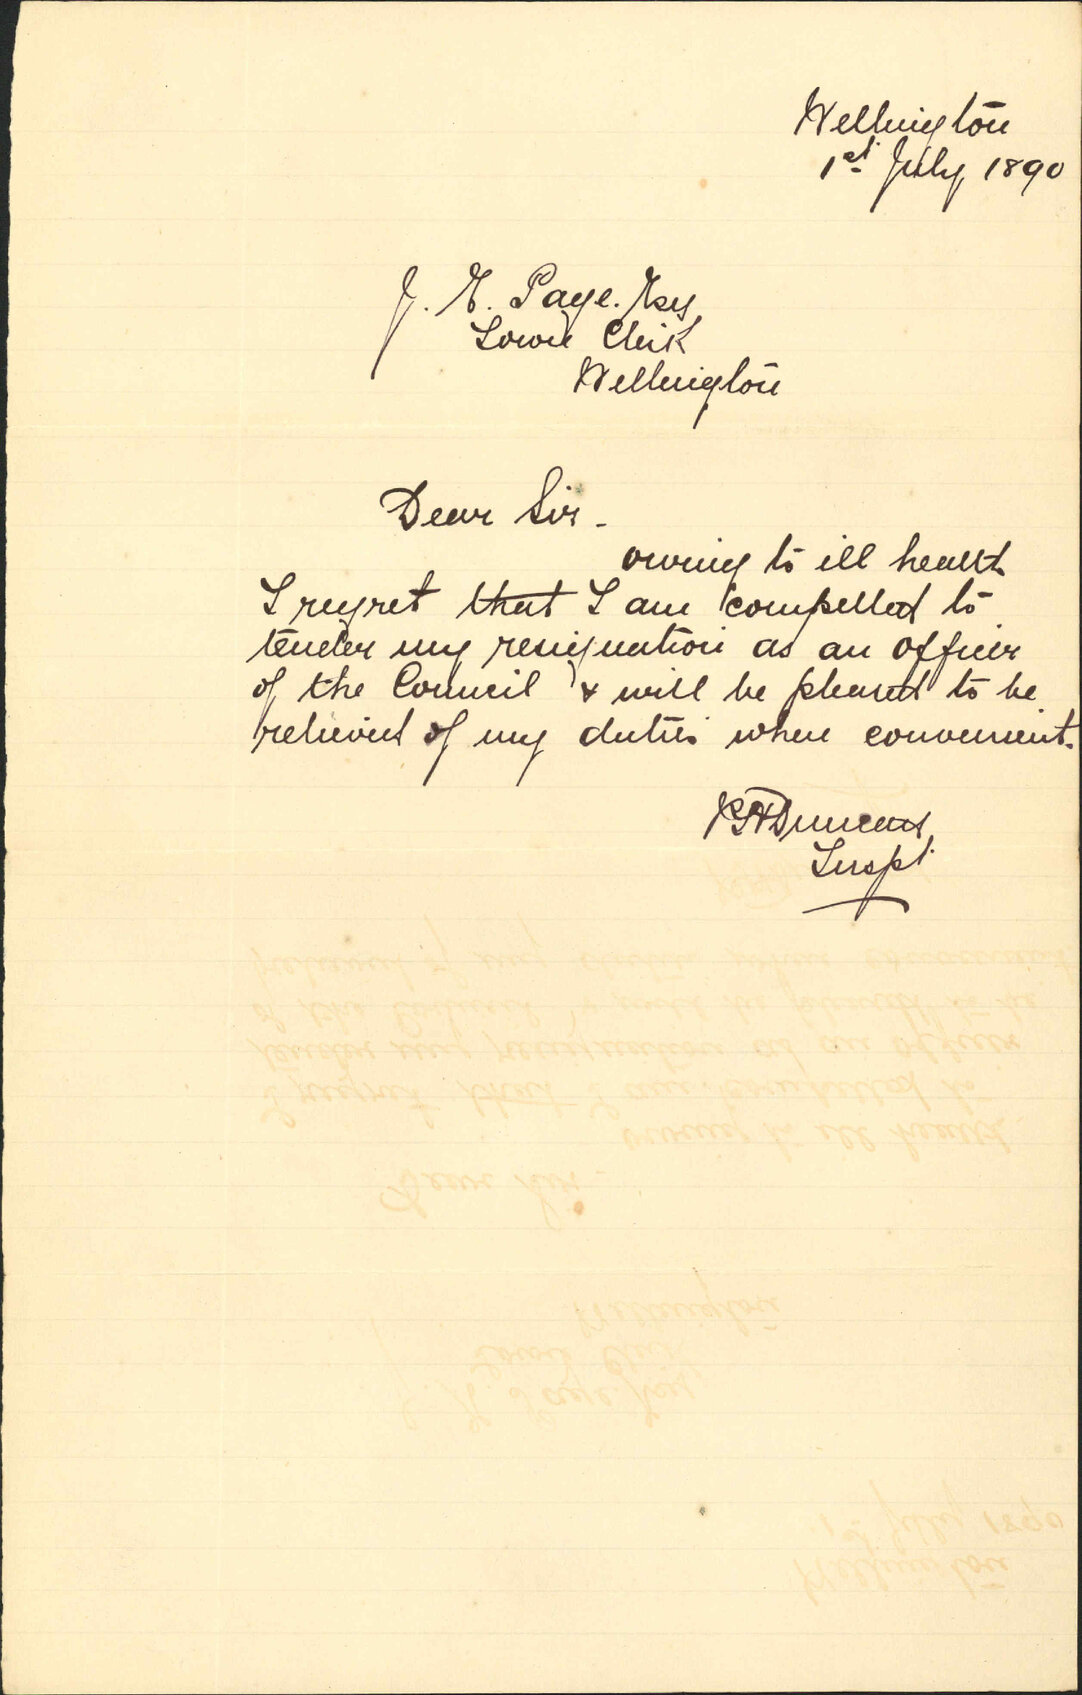 Wellington
1st July 1890
J. E. Page. Esq
Town Clerk
Wellington
Dear Sir -
owing to ill health
I regret that I am compelled to
tender my resignation as an officer
of the Council & will be pleased to be
relieved of my duties when convenient.
Duncan
Inspt